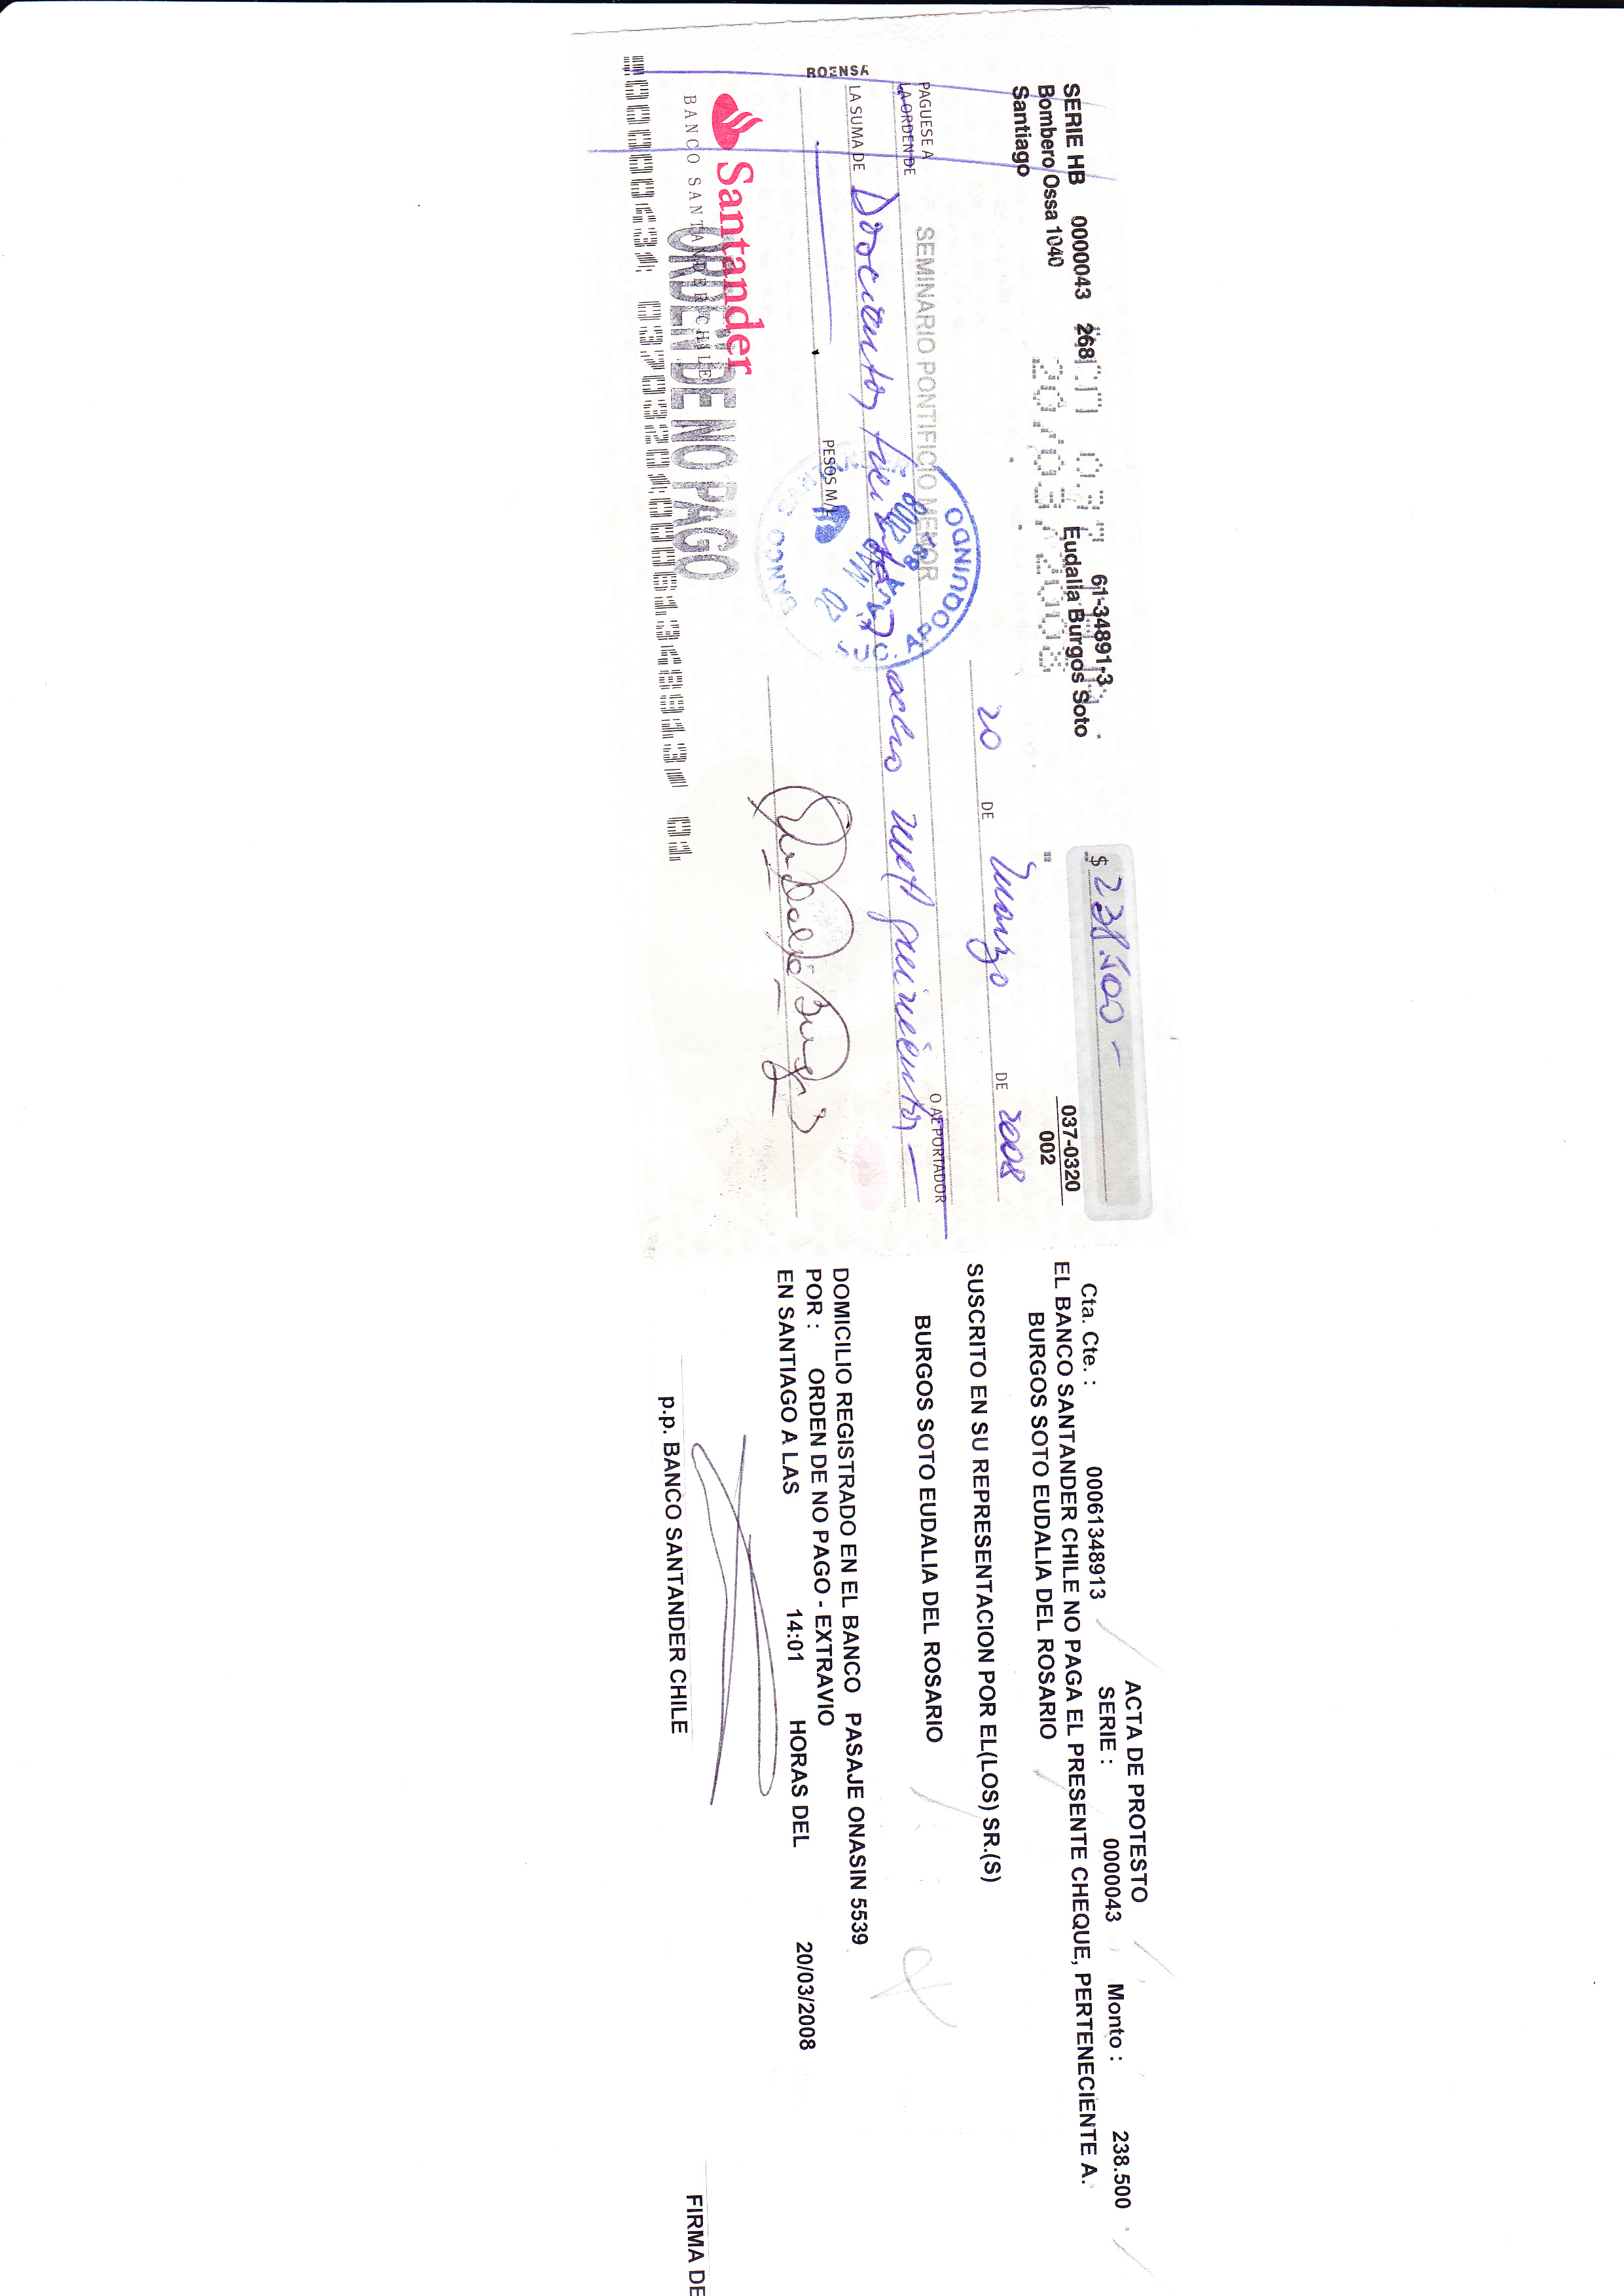 SERIE HB 0000043 268 61-34891-3 $ 238.500 -
Bombero Ossa 1040 Eudalia Burgos Soto 037-0320
Santiago 002
20 DE Marzo DE 2008
PAGUESE A
LA ORDEN DE SEMINARIO PONTIFICIO MENOR O AL PORTADOR
LA SUMA DE Doscientos treinta y ocho mil quinientos —
ROENSA
PESOS M/L
BANCO SANTANDER
SUC. APOQUINDO
20 MAR 2008
CAJA 89
Santander
BANCO SANTANDER CHILE
ORDEN DE NO PAGO
Eudalia Burgos
ACTA DE PROTESTO
Cta. Cte. : 00061348913 SERIE : 0000043 Monto : 238.500
EL BANCO SANTANDER CHILE NO PAGA EL PRESENTE CHEQUE, PERTENECIENTE A.
BURGOS SOTO EUDALIA DEL ROSARIO
SUSCRITO EN SU REPRESENTACION POR EL(LOS) SR.(S)
BURGOS SOTO EUDALIA DEL ROSARIO
DOMICILIO REGISTRADO EN EL BANCO PASAJE ONASIN 5539
POR : ORDEN DE NO PAGO - EXTRAVIO
EN SANTIAGO A LAS 14:01 HORAS DEL 20/03/2008
p.p. BANCO SANTANDER CHILE
FIRMA DE